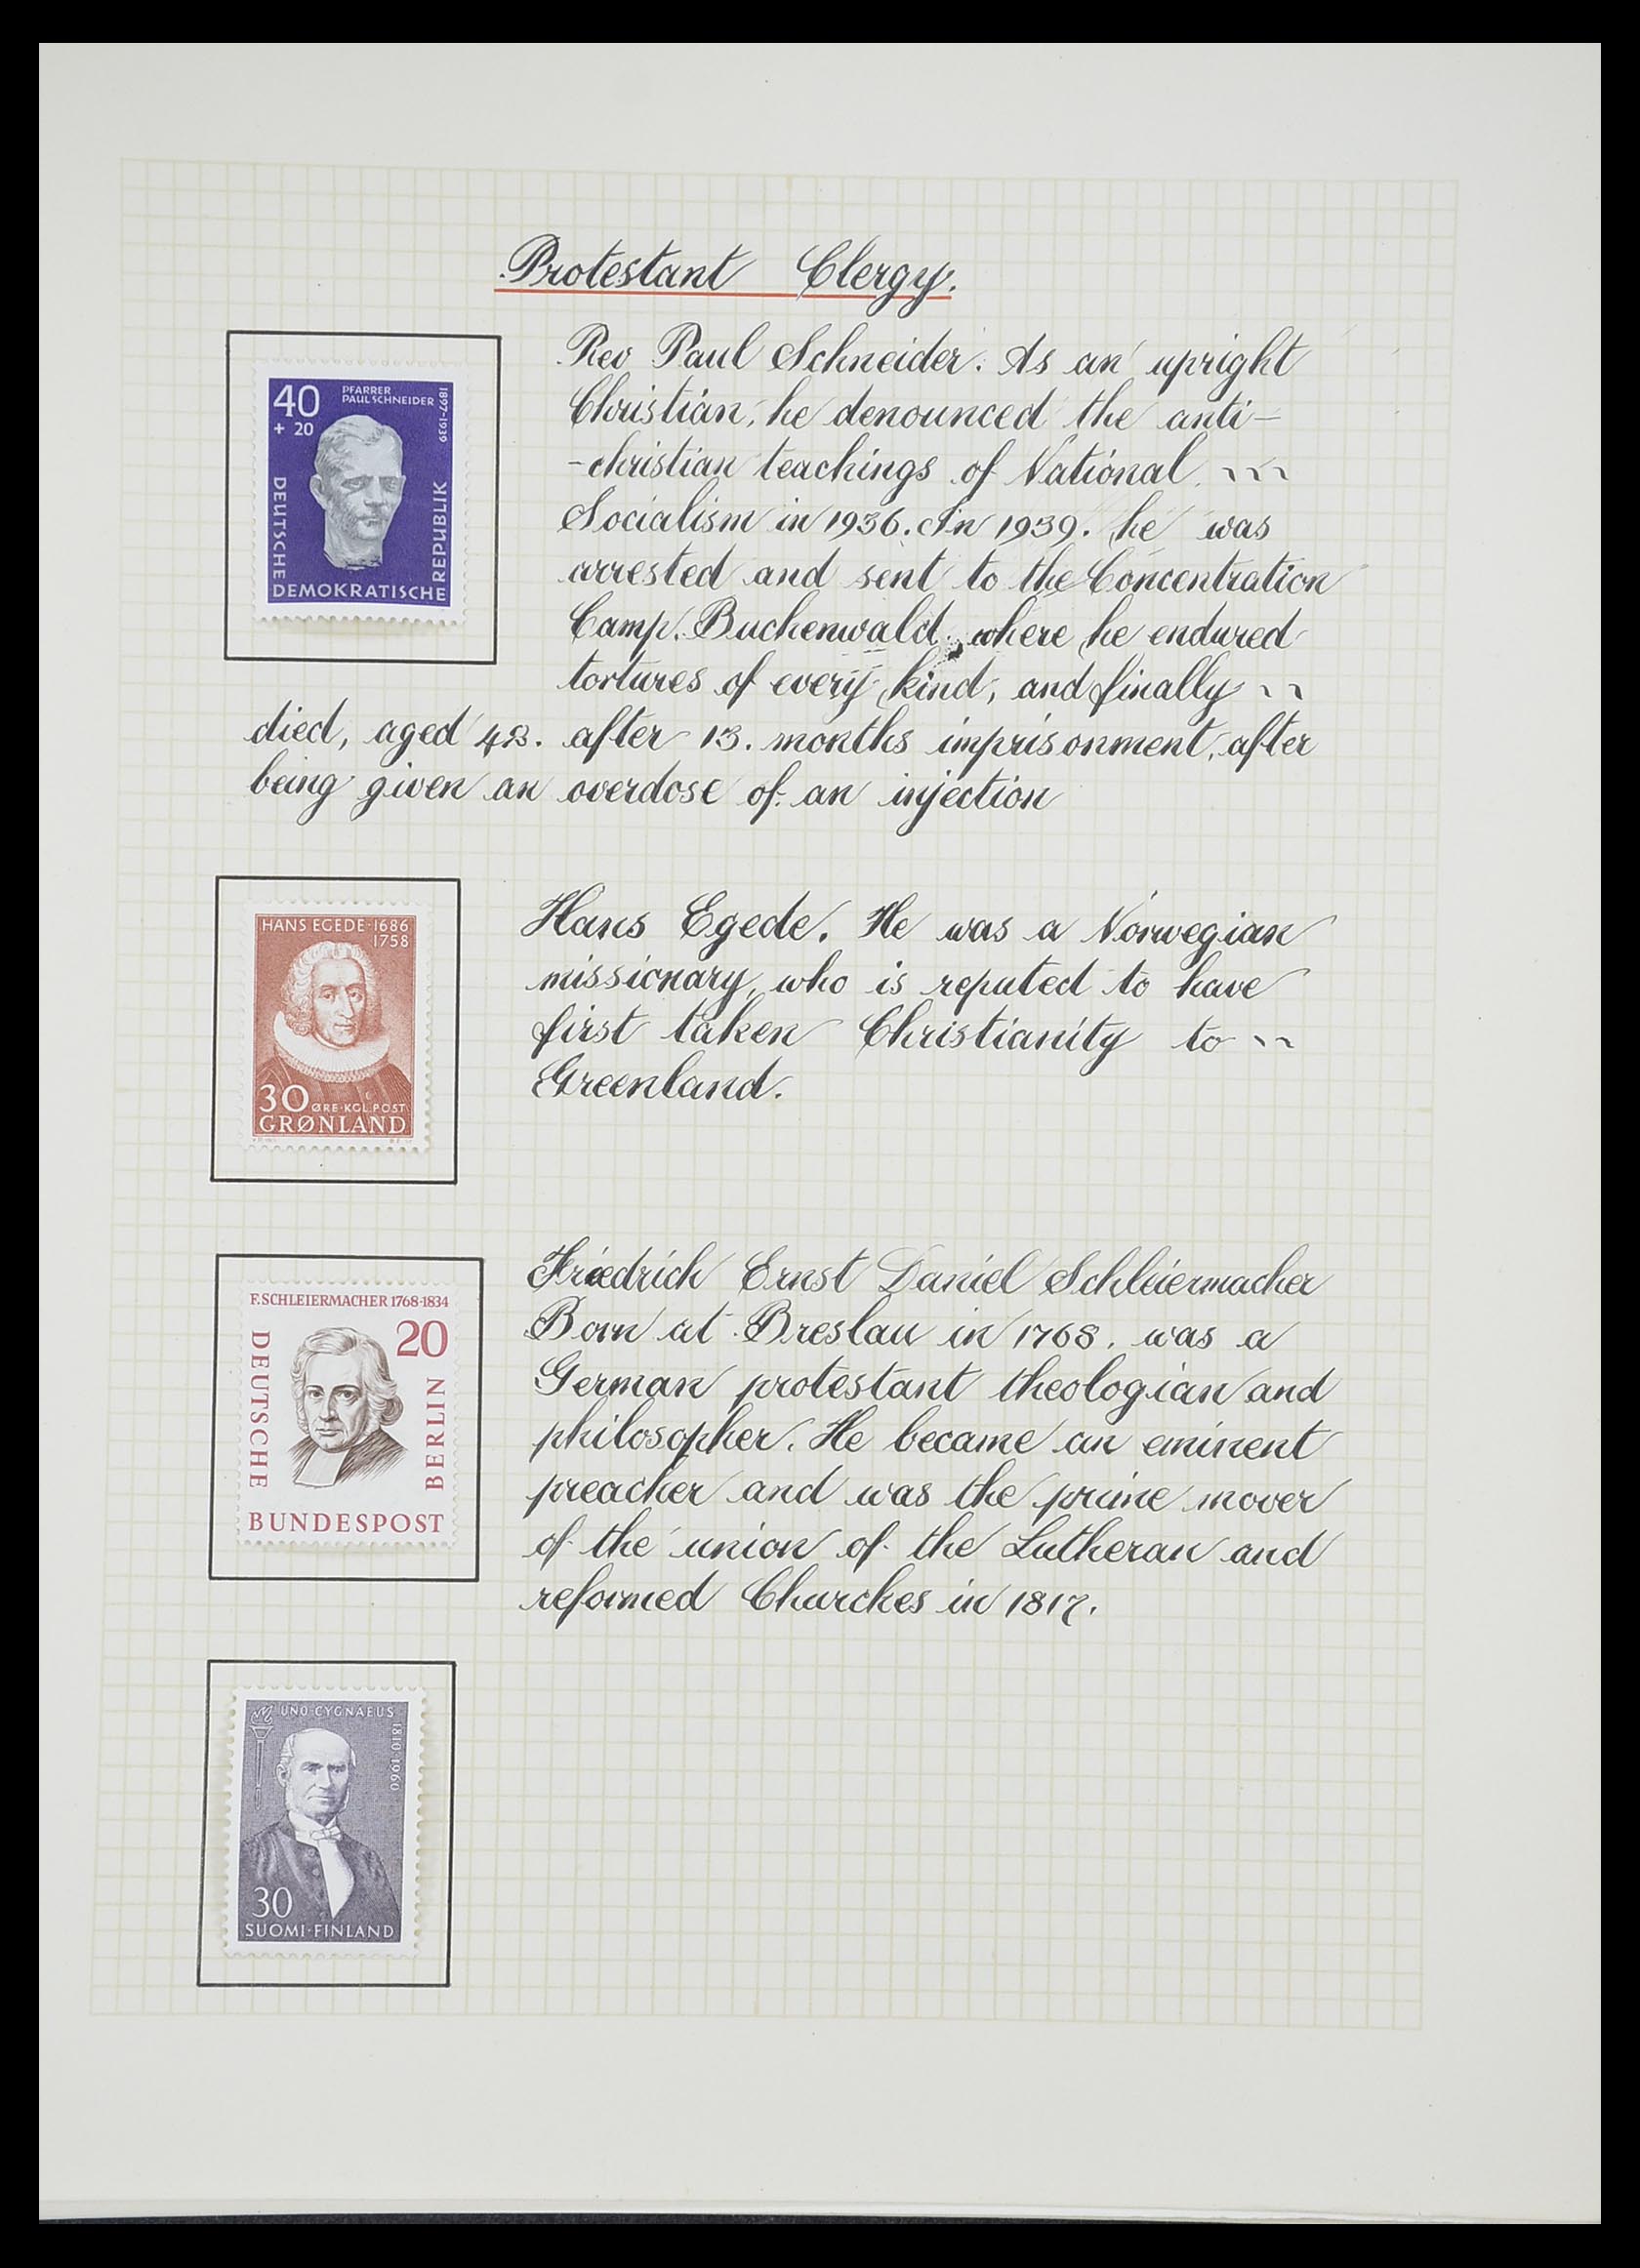 Protestant Clergy.
40
+ 20
PFARRER
PAUL SCHNEIDER
1897-1939
DEUTSCHE
DEMOKRATISCHE
REPUBLIK
Rev Paul Schneider. As an upright
Christian, he denounced the anti-
-christian teachings of National
Socialism in 1936. In 1939. he was
arrested and sent to the Concentration
Camp. Buchenwald. where he endured
tortures of every kind, and finally
died, aged 42. after 13. months imprisonment, after
being given an overdose of an injection
HANS EGEDE·1686
1758
30 ØRE·KGL.POST
GRØNLAND
Hans Egede. He was a Norwegian
missionary, who is reputed to have
first taken Christianity to
Greenland.
F. SCHLEIERMACHER 1768-1834
20
DEUTSCHE
BUNDESPOST
BERLIN
Friedrich Ernst Daniel Schleiermacher
Born at Breslau in 1768. was a
German protestant theologian and
philosopher. He became an eminent
preacher and was the prime mover
of the union of the Lutheran and
reformed Churches in 1817.
UNO·CYGNAEUS
1810·1960
30
SUOMI·FINLAND